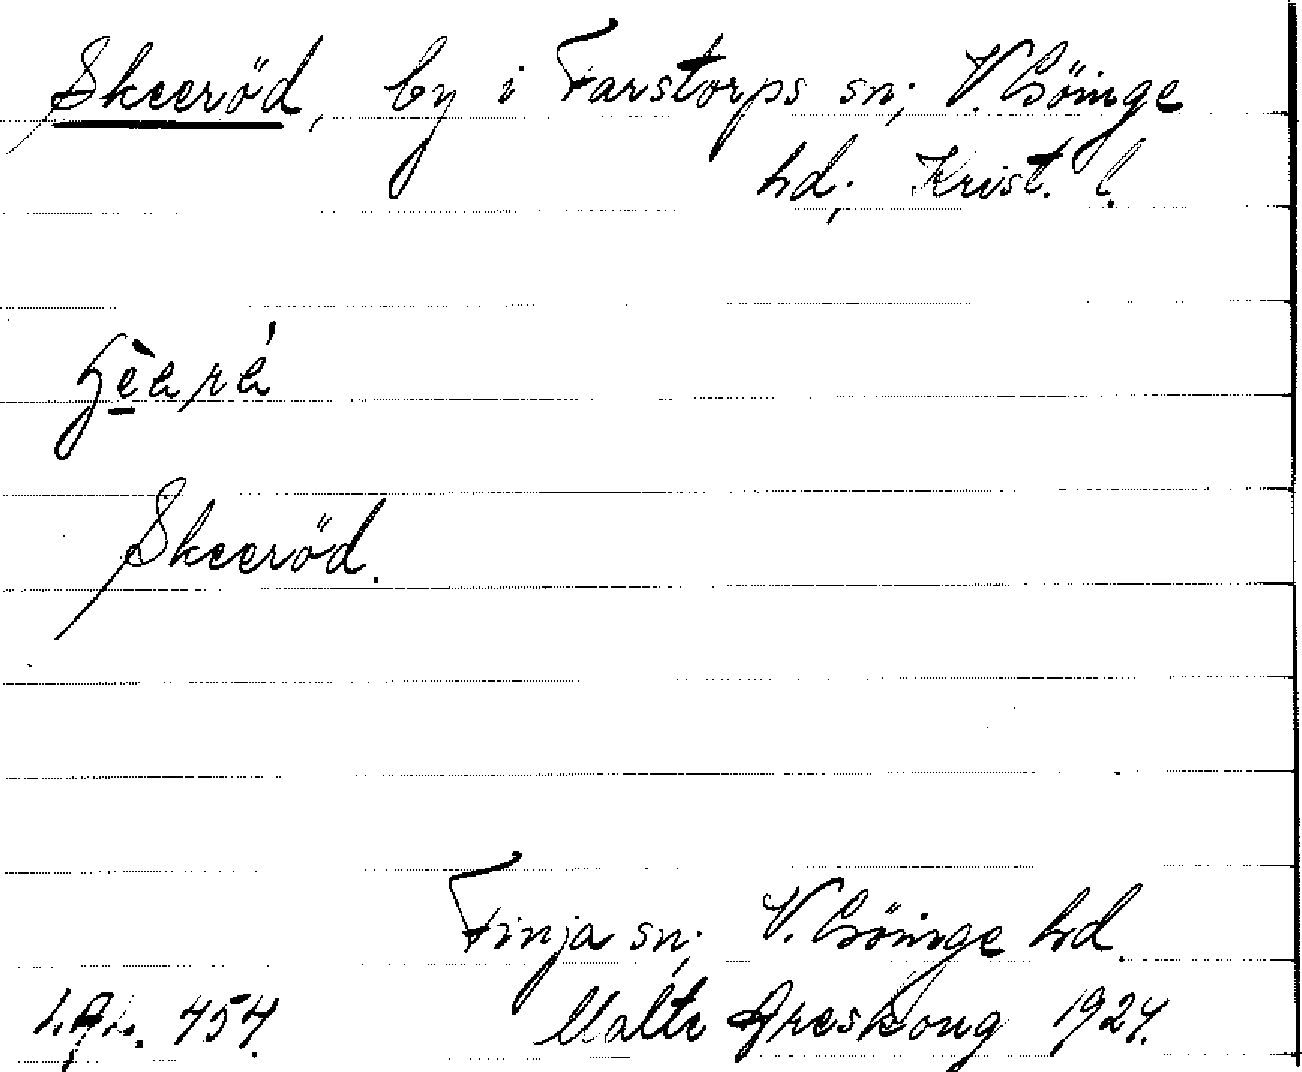 Skeeröd, by i Farstorps sn; V. Göinge
hd; Krist. l.
Skeeröd.
Finja sn; V. Göinge hd.
L.A.L. 454. Malte Areskoug 1924.